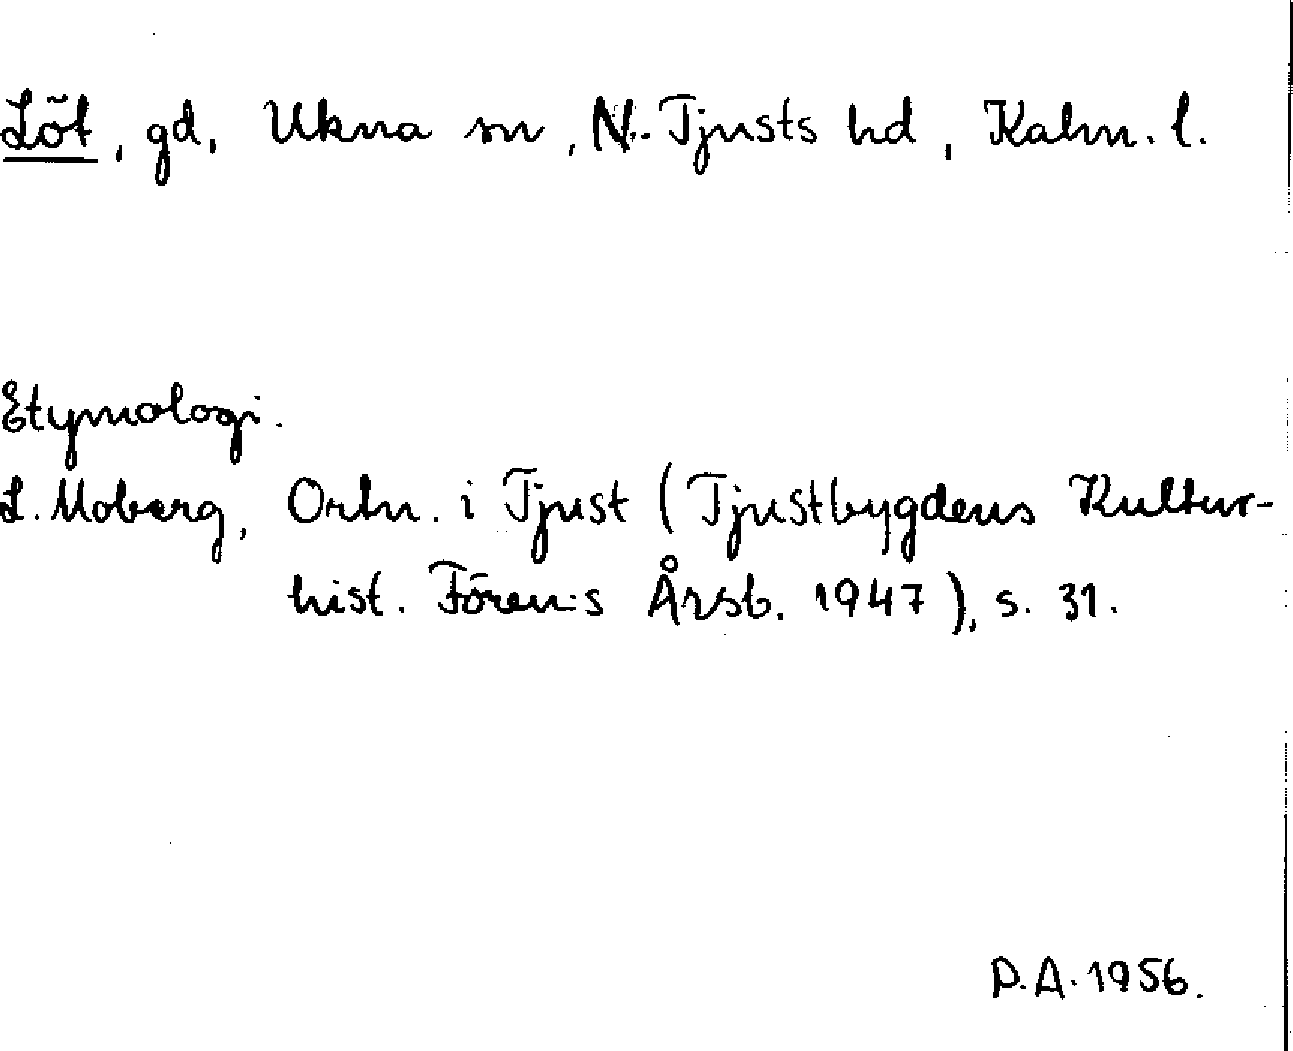 Löt, gd, Ukna sn, N. Tjusts hd, Kalm. l.
Etymologi.
L. Moberg, Ortn. i Tjust (Tjustbygdens Kultur-
hist. Fören:s Årsb. 1947), s. 31.
P.A. 1956.